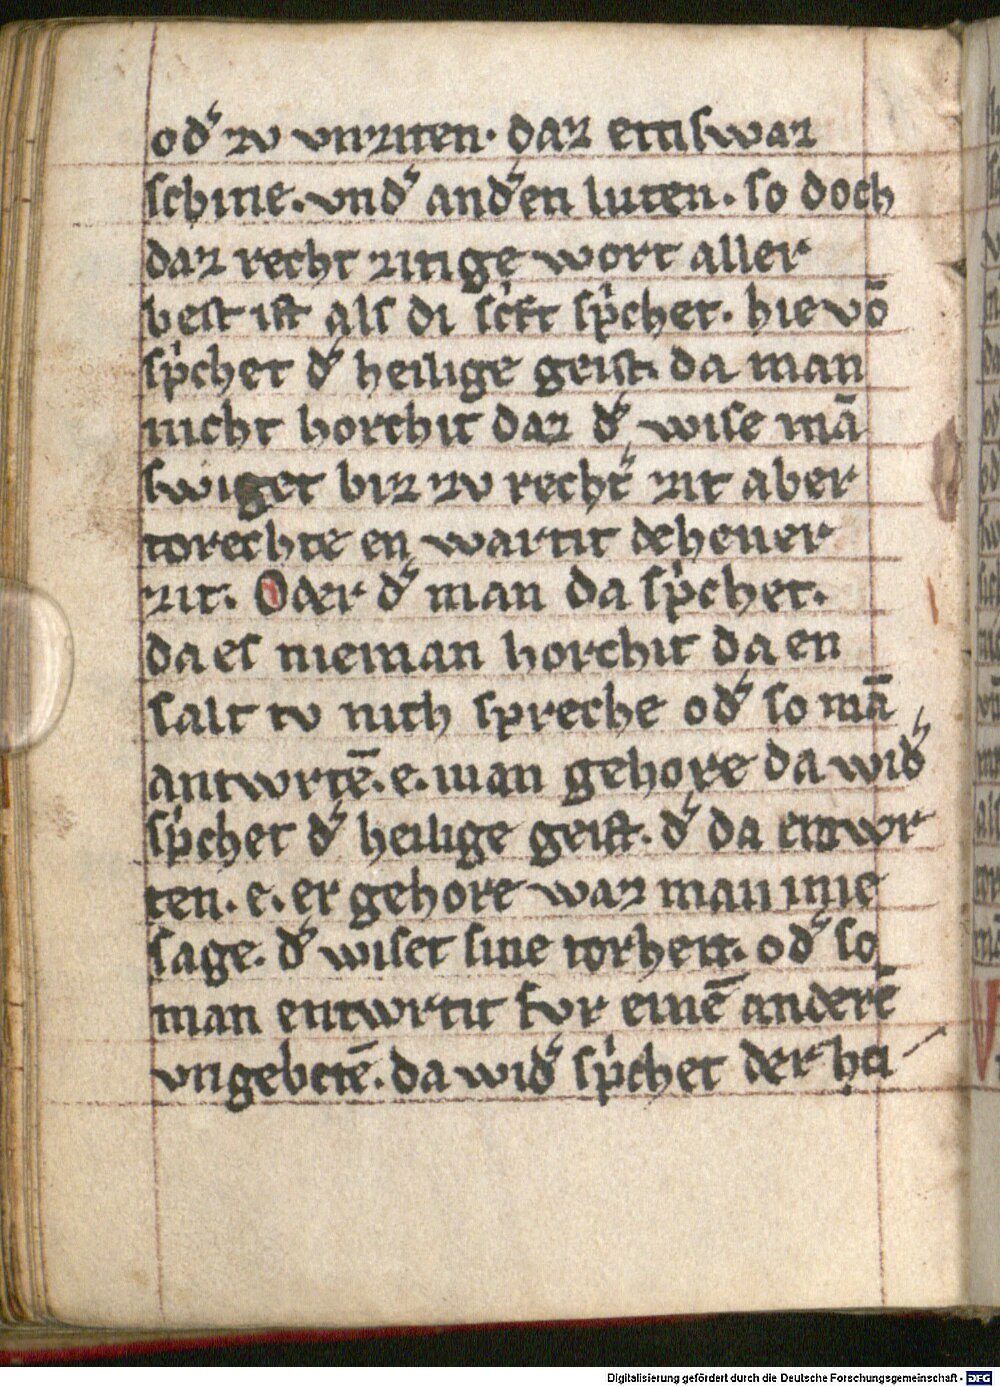 odˀ zv vnziten· daz ettiswaz
schine. vndˀ andˀen luten. so doch
daz recht zitige wort aller
best ist als di scͥft spͥchet. hie vō
spͥchet dˀ heilige geist. da man
nicht horchit daz dˀ wise mā
swiget biz zv rechtˀ zit aber
torechte en wartit dehener
zit. Oder dˀ man da spͥchet.
da es nieman horchit da en
salt tv nich spreche odˀ so mā
antwrtē. e. man gehore da widˀ
spͥchet dˀ heilige geist. dˀ da entwr
ten. e. er gehore waz man ime
sage. dˀ wiset sine torheit. odˀ so
man entwrtit fvr einē anderē
vngebetē. da widˀ spͥchet der hei
Digitalisierung gefördert durch die Deutsche Forschungsgemeinschaft - DFG